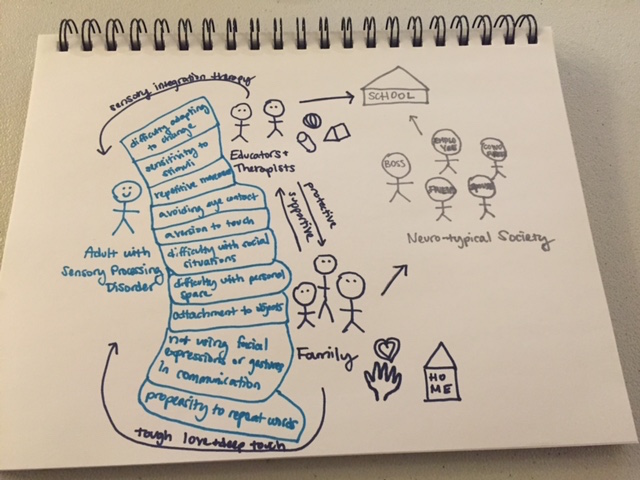 sensory integration therapy
difficulty adapting
to change
sensitivity to
stimuli
repetitive
avoiding eye contact
aversion to touch
difficulty with social
situations
difficulty with personal
space
attachment to objects
not using facial
expressions or gestures
in communication
propensity to repeat words
tough love + deep touch
Adult with
Sensory Processing
Disorder
Educators +
Therapists
supportive
protective
Family
HO
ME
SCHOOL
BOSS
Neuro-typical Society